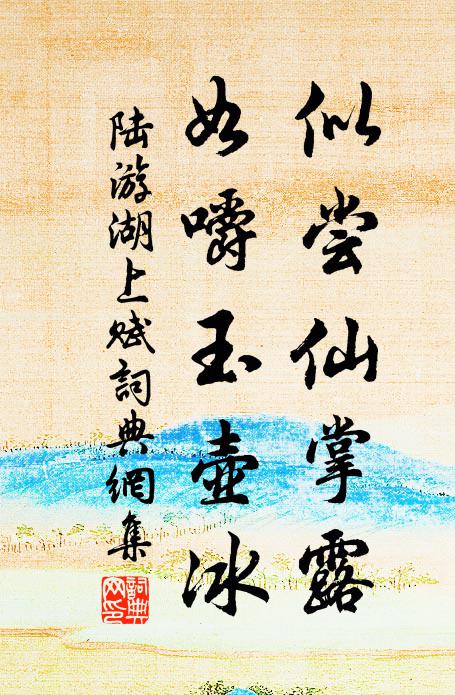 似尝仙掌露
如嚼玉壶冰
陆游湖上赋詞典網集
詞典网印